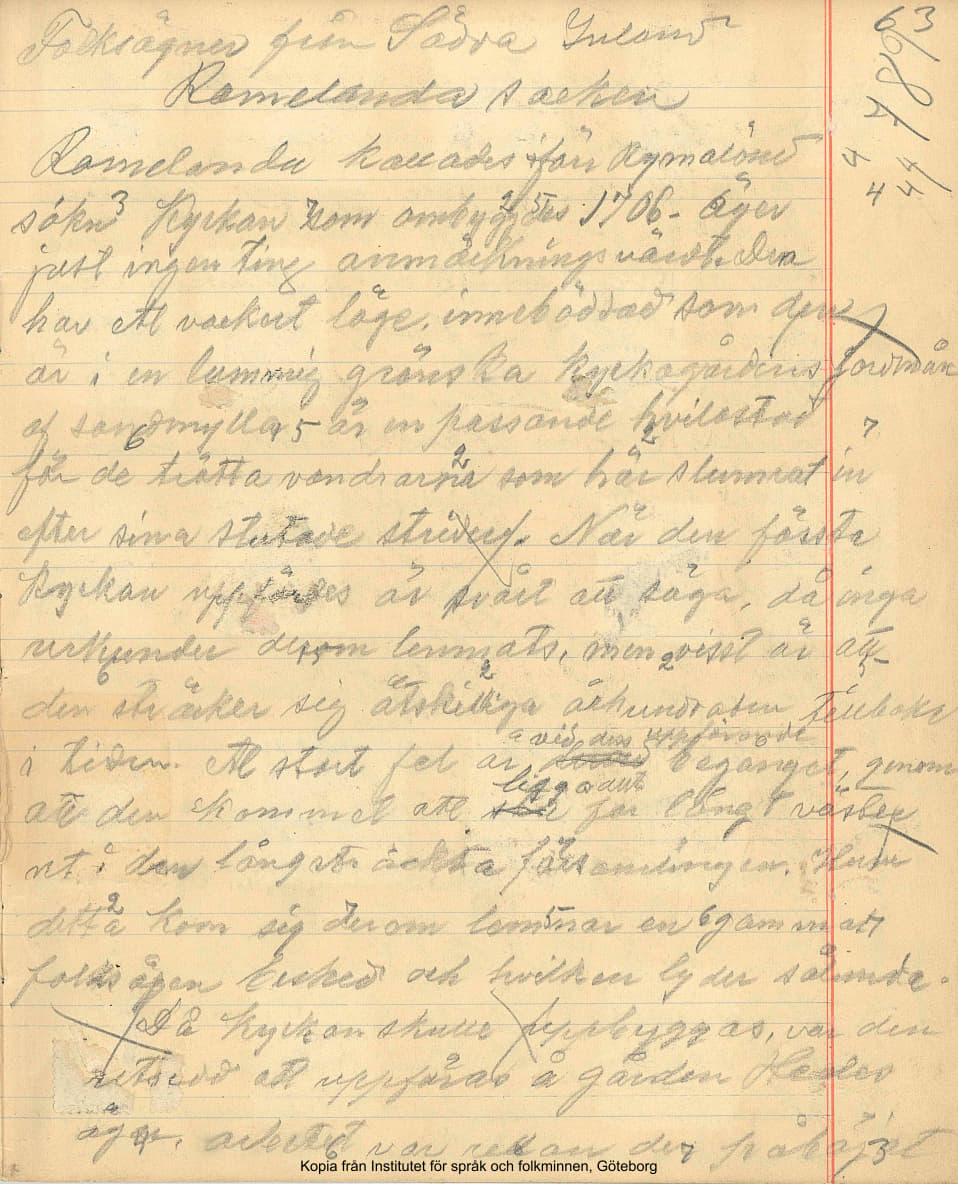 63
Folksägner från Södra Inland
Romelanda socken
Romelanda kallades förr Rymalönd
sokn Kyrkan som ombyggdes 1706 - äger
just ingenting anmärkningsvärdt. Den
har ett vackert läge, innebäddad som den
är i en lummig grönska Kyrkogårdens jordmån
af sandmylla är en passande hvilostad
för de trötta vandrarna som här slumrat in
efter sina slutade strider. När den första
Kyrkan uppfördes är svårt att säga, då inga
urkunder derom lemnats, men visst är att
den sträcker sig åtskilliga århundraden tillbaka
vid dess uppförande
i tiden. Ett stort fel är begånget, genom
ligga allt
att den kommet att för långt väster
ut i den långsträckta församlingen. Huru
detta kom sig derom lemnar en gammal
folksägen besked och hvilken lyder sålunda.
Då Kyrkan skulle uppbyggas, var den
att uppföras å gården Hedes
ägor, arbetet var redan der påböjet
Kopia från Institutet för språk och folkminnen, Göteborg